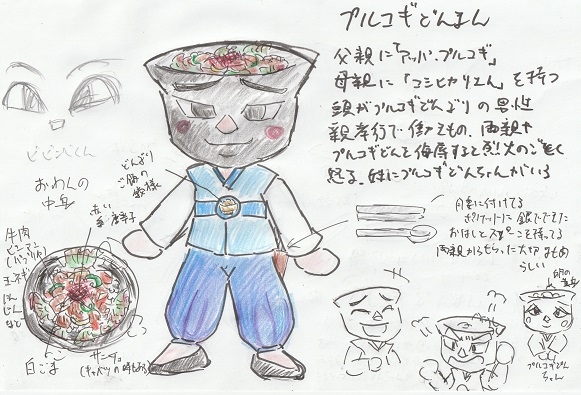 プルコギどんまん
父親に「アッパ・プルコギ」
母親に「コシヒカリさん」を持つ
頭がプルコギどんぶりの男性
親孝行で
両親や
プルコギどんを侮辱すると烈火のごとく
怒る。妹にプルコギどんちゃんがいる
ビビンバくん
おわんの
中身
どんぶり
ご飯の
模様
赤い
唐辛子
牛肉
ピーマン
(パプリカ)
玉ネギ
にんじん
など
白ごま
サンチュ
(キャベツの時もある)
腰に付けてる
ポケットに銀でできた
おはしとスプーンを持ってる
両親からもらった大切なもの
らしい
プルコギどん
ちゃん